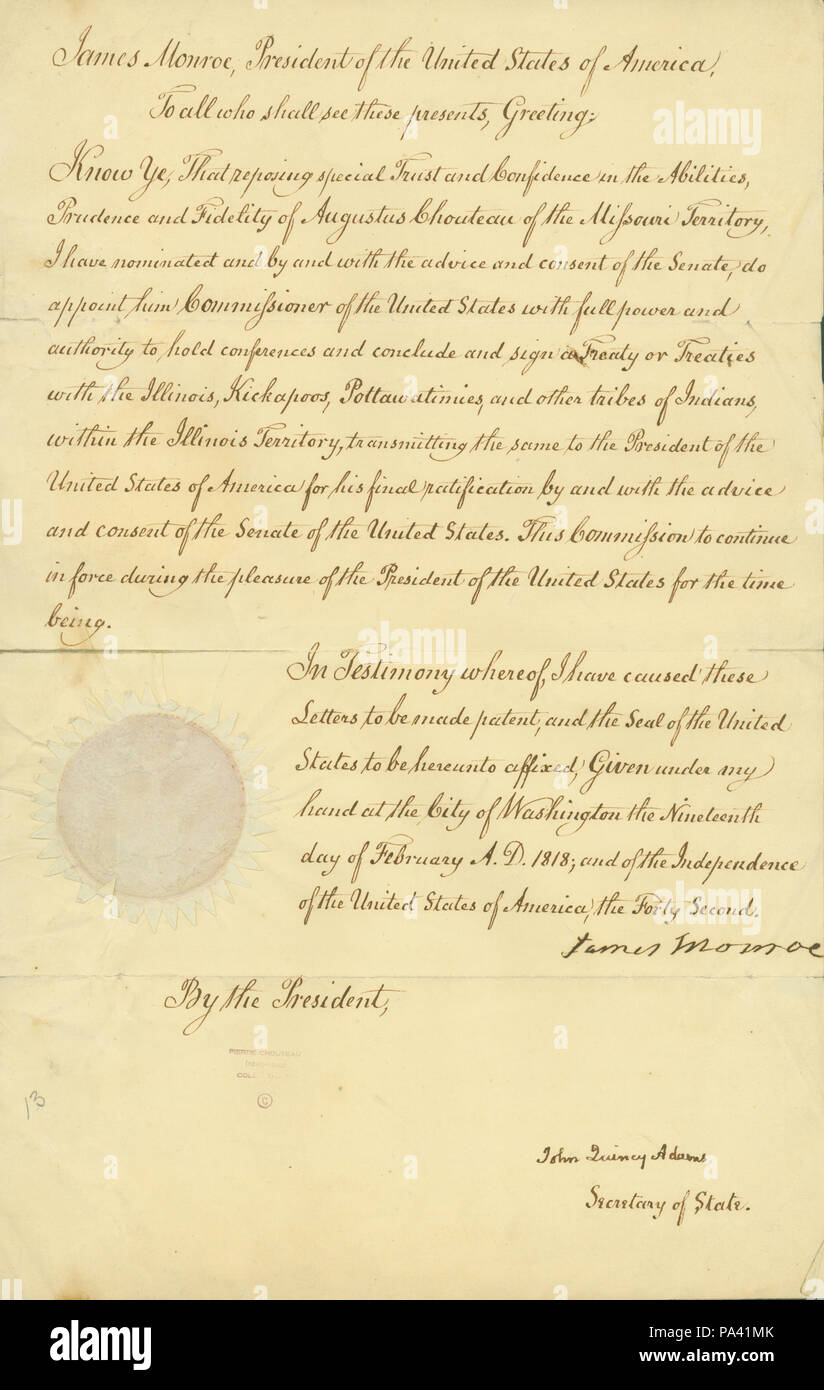 James Monroe, President of the United States of America,
To all who shall see these presents, Greeting:
Know Ye, That reposing special Trust and Confidence in the Abilities,
Prudence and Fidelity of Augustus Chouteau of the Missouri Territory,
I have nominated and by and with the advice and consent of the Senate, do
appoint him Commissioner of the United States with full power and
authority to hold conferences and conclude and sign a Treaty or Treaties
with the Illinois, Kickapoos, Pottawatimies, and other tribes of Indians,
within the Illinois Territory, transmitting the same to the President of the
United States of America for his final ratification by and with the advice
and consent of the Senate of the United States. This Commission to continue
in force during the pleasure of the President of the United States for the time
being.
In Testimony whereof, I have caused these
Letters to be made patent, and the Seal of the United
States to be hereunto affixed, Given under my
hand at the City of Washington the Nineteenth
day of February A. D. 1818; and of the Independence
of the United States of America, the Forty Second.
James Monroe
By the President,
PIERRE CHOUTEAU
©
13
John Quincy Adams
Secretary of State.
alamy
alamy
alamy
alamy
Image ID: PA41MK
www.alamy.com